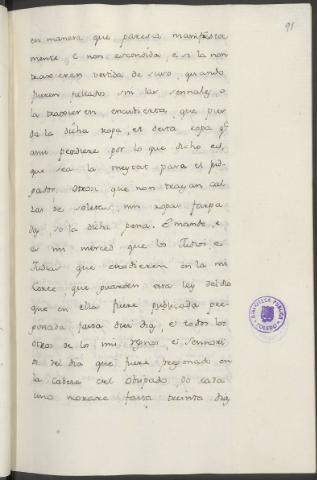 91
en manera que paresca manifiesta
mente e non escondida, e si la non
traxieren vestida de suso, quando
fueren fallados sin las sennales, o
la traxieren encubierta, que pier
da la dicha ropa, et desta ropa q̃
ansi perdiere por lo que dicho es,
que sea la meytat para el
Otrosi que non trayan cal
zas de soletas, nin ropas farpa
das so la dicha pena. E mando, e
es mi merced que los Judios e
Judias que estodieren en la mi
corte, que guarden esta ley del dia
que en ella fuere publicada pre
gonada fasta dies dias, et todos los
otros de los mis regnos et sennori
os del dia que fuere pregonado en
la cabeza del Obispado, do cada
uno morare fasta treinta dias
BIBLIOTECA PUBLICA
TOLEDO